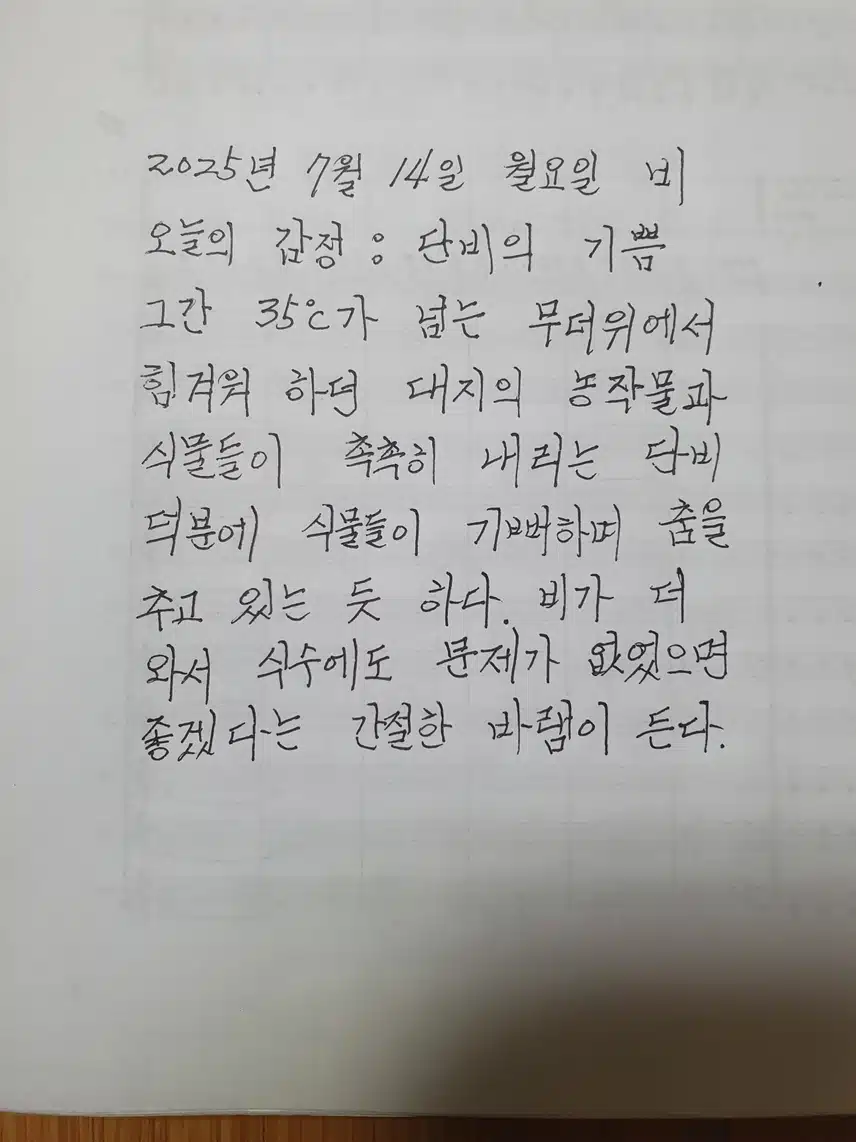 2025년 7월 14일 월요일 비
오늘의 감정 : 단비의 기쁨
그간 35℃가 넘는 무더위에서
힘겨워 하던 대지의 농작물과
식물들이 촉촉히 내리는 단비
덕분에 식물들이 기뻐하며 춤을
추고 있는 듯 하다. 비가 더
와서 식수에도 문제가 없었으면
좋겠다는 간절한 바램이 든다.